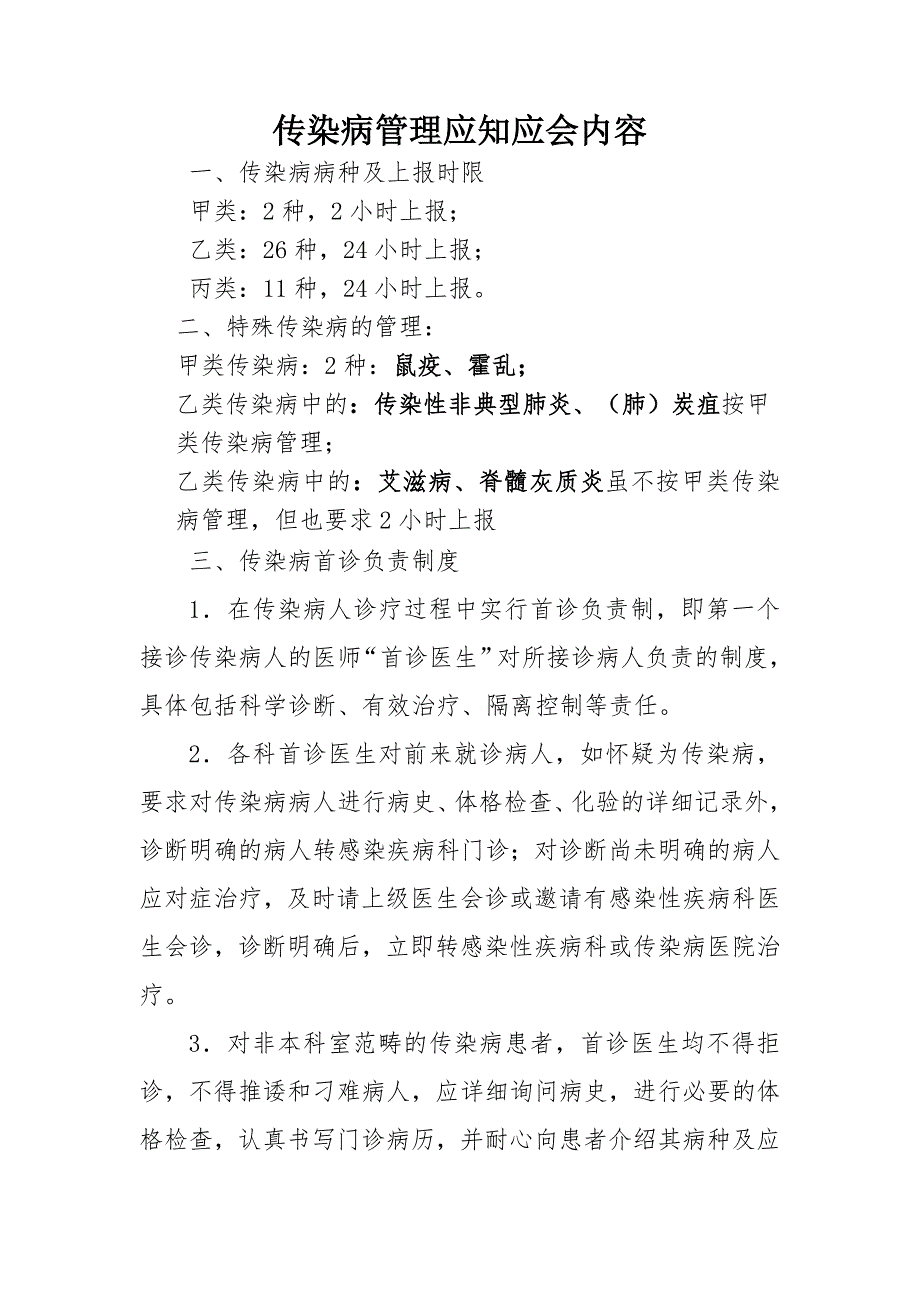 传染病管理应知应会内容
一、传染病病种及上报时限
甲类：2 种，2 小时上报；
乙类：26 种，24 小时上报；
丙类：11 种，24 小时上报。
二、特殊传染病的管理：
甲类传染病：2 种：鼠疫、霍乱；
乙类传染病中的：传染性非典型肺炎、（肺）炭疽按甲
类传染病管理；
乙类传染病中的：艾滋病、脊髓灰质炎虽不按甲类传染
病管理，但也要求 2 小时上报
三、传染病首诊负责制度
1．在传染病人诊疗过程中实行首诊负责制，即第一个
接诊传染病人的医师“首诊医生”对所接诊病人负责的制度，
具体包括科学诊断、有效治疗、隔离控制等责任。
2．各科首诊医生对前来就诊病人，如怀疑为传染病，
要求对传染病病人进行病史、体格检查、化验的详细记录外，
诊断明确的病人转感染疾病科门诊；对诊断尚未明确的病人
应对症治疗，及时请上级医生会诊或邀请有感染性疾病科医
生会诊，诊断明确后，立即转感染性疾病科或传染病医院治
疗。
3．对非本科室范畴的传染病患者，首诊医生均不得拒
诊，不得推诿和刁难病人，应详细询问病史，进行必要的体
格检查，认真书写门诊病历，并耐心向患者介绍其病种及应